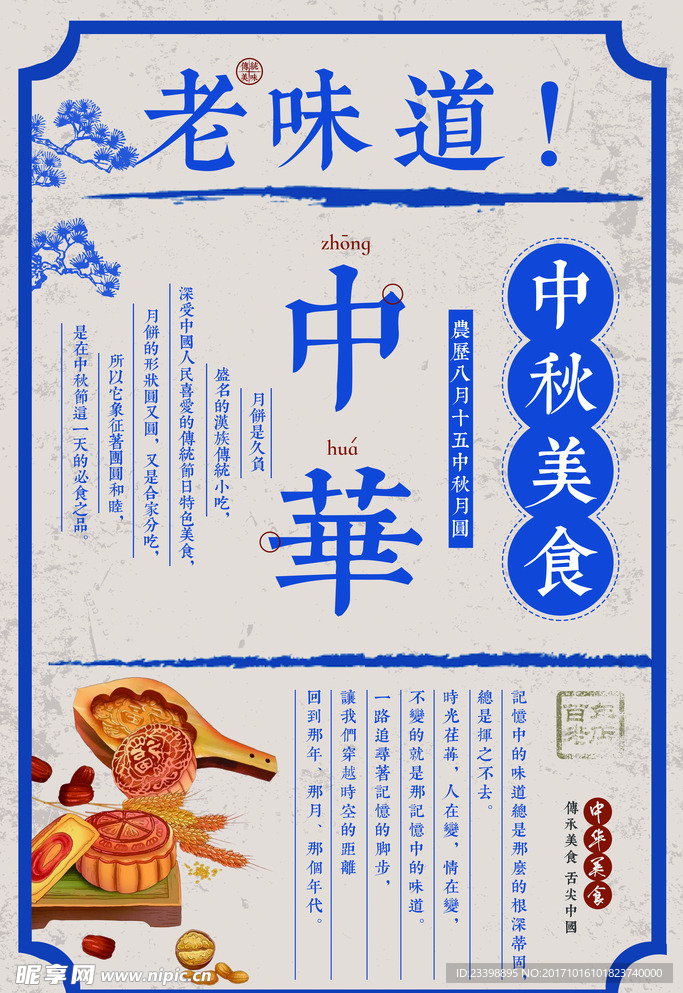 老味道！
傳統
美味
zhōng
中
huá
華
中秋美食
農歷八月十五中秋月圓
月餅是久負
盛名的漢族傳統小吃，
深受中國人民喜愛的傳統節日特色美食，
月餅的形狀圓又圓，又是合家分吃，
所以它象征著團圓和睦，
是在中秋節這一天的必食之品。
百年
老店
中华美食
傳承美食 舌尖中國
記憶中的味道總是那麼的根深蒂固，
總是揮之不去。
時光荏苒，人在變，情在變，
不變的就是那記憶中的味道。
一路追尋著記憶的脚步，
讓我們穿越時空的距離
回到那年、那月、那個年代。
昵享网 www.nipic.cn
ID:23398895 NO:20171016101823740000